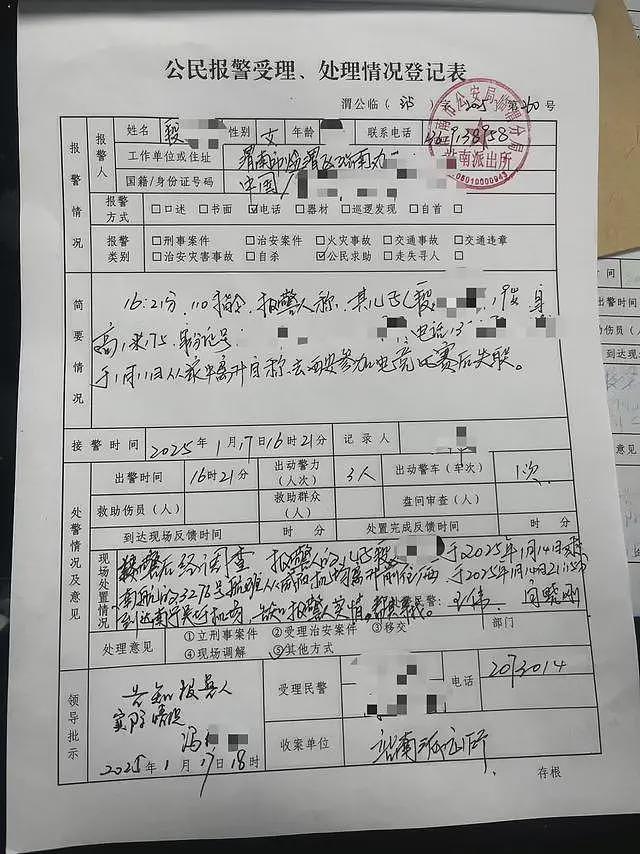 公民报警受理、处理情况登记表
渭公临(站)字2025第 号
报警情况
报警人
姓名 殷 性别 女 年龄 联系电话
工作单位或住址 渭南市临渭区站南办
国籍/身份证号码 中国
报警方式 □口述 □书面 ☑电话 □器材 □巡逻发现 □自首 □
报警类别 □刑事案件 □治安案件 □火灾事故 □交通事故 □交通违章
□治安灾害事故 □自杀 ☑公民求助 □走失寻人 □
简要情况
16:21分,110指令,报警人称,其儿子(殷 ,19岁,身
高1米75,身份证号 ,电话13
于1月11日从家中离开自称去西安参加电竞比赛后失联。
接警时间 2025年1月17日16时21分 记录人
处警情况及意见
出警时间 16时21分 出动警力(人次) 3人 出动警车(车次) 1次
救助伤员(人) 救助群众(人) 盘问审查(人)
到达现场反馈时间 时 分 处置完成反馈时间 时 分
现场处置情况
接警后经调查 报警人的儿子殷 于2025年1月14日乘
南航 3276号航班从咸阳机场离开前往 于2025年1月14日21时15分
到达南宁吴圩机场,告知报警人实情。 民警:王伟
处理意见 ①立刑事案件 ②受理治安案件 ③移交 部门
④现场调解 ⑤其他方式
领导批示
告知报警人
实际情况
冯
2025年1月17日18时
受理民警
电话 2073014
收案单位 站南派出所
存根
渭南市公安局临渭分局
站南派出所